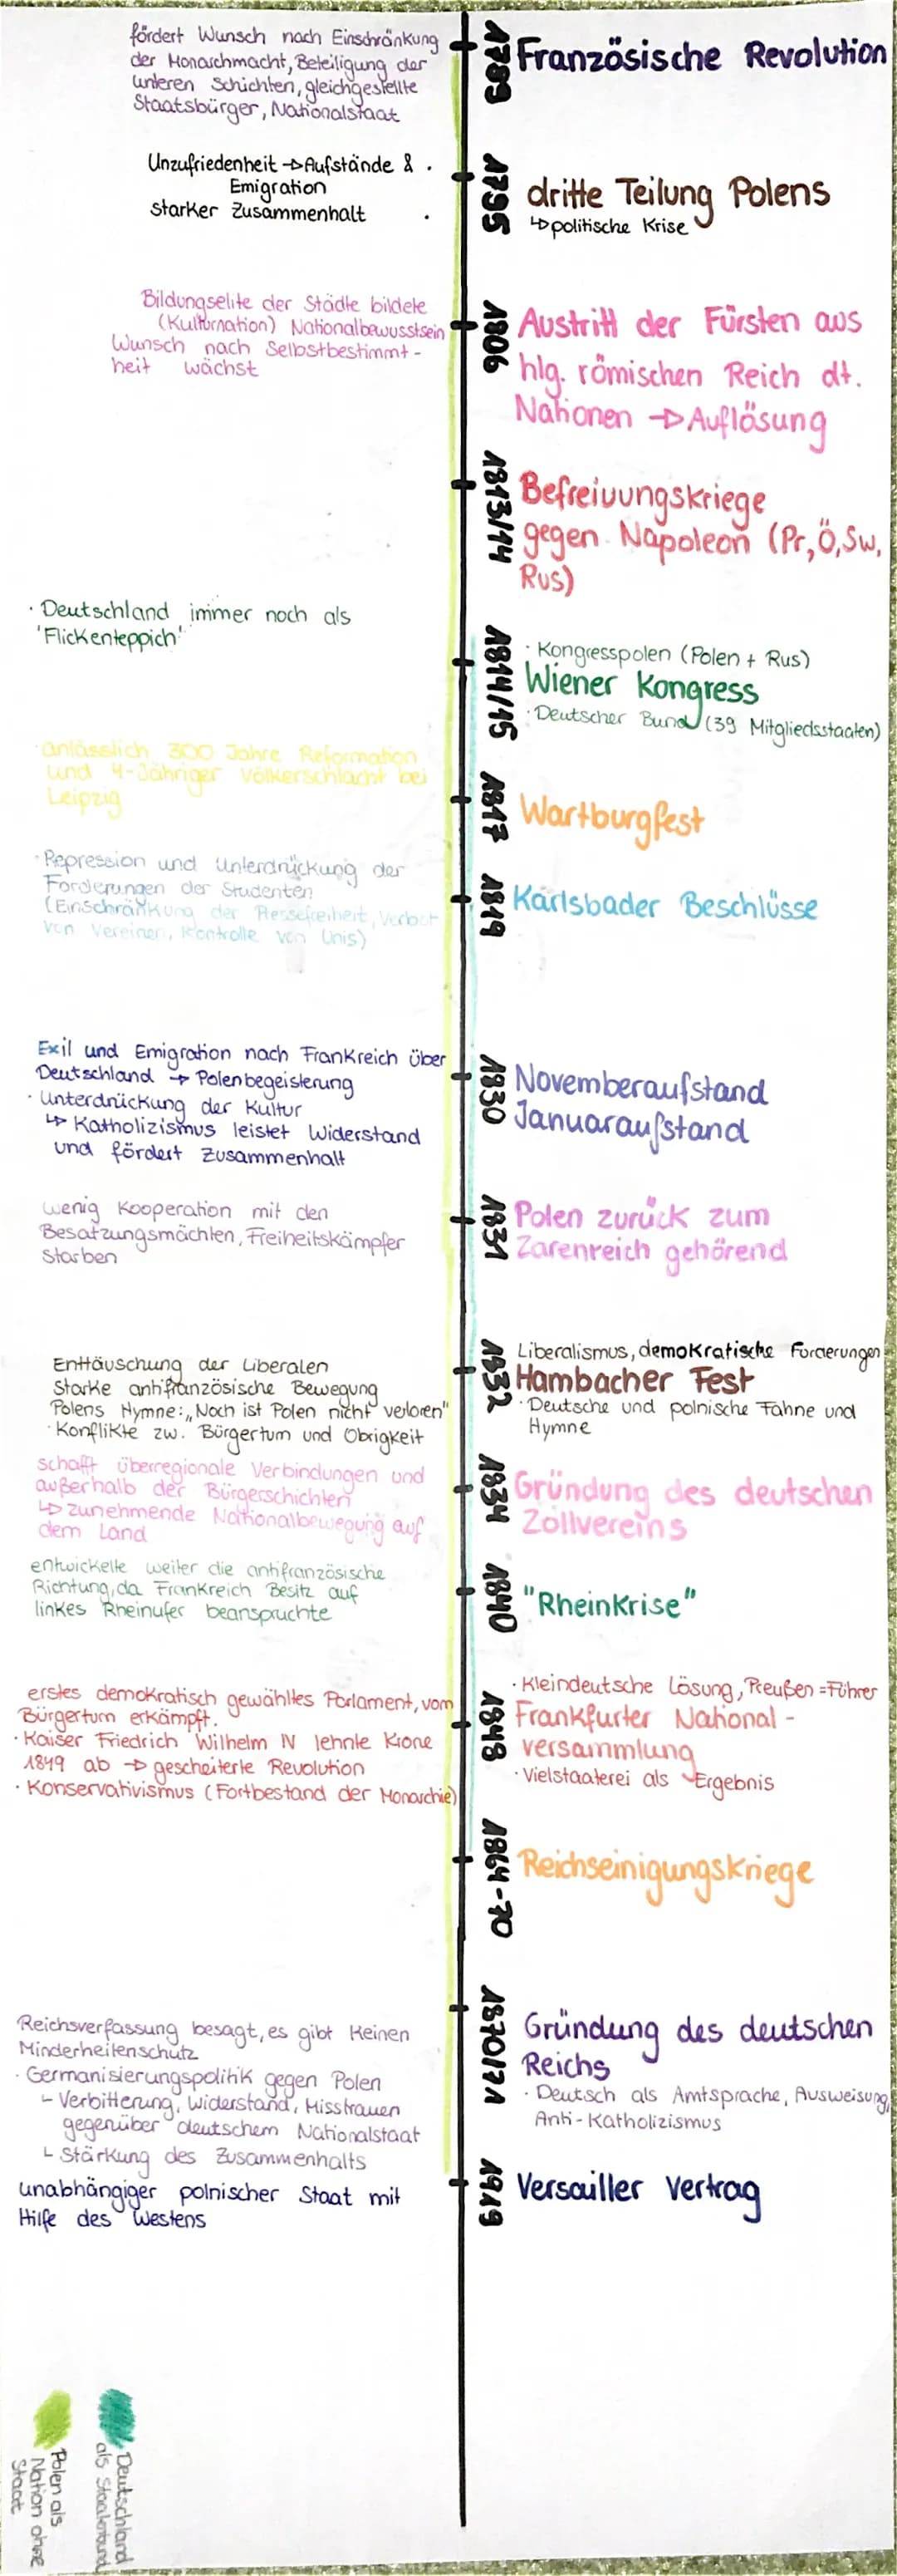 fördert Wunsch nach Einschränkung
der Monarchmacht, Beteiligung der
unteren Schichten, gleichgestellte
Staatsbürger, Nationalstaat
1789
Französische Revolution
Unzufriedenheit → Aufstände &
Emigration
starker Zusammenhalt
1795
dritte Teilung Polens
↳ politische Krise
Bildungselite der Städte bildete
(Kulturnation) Nationalbewusstsein
Wunsch nach Selbstbestimmt-
heit wächst
1806
Austritt der Fürsten aus
hlg. römischen Reich dt.
Nationen → Auflösung
1813/14
Befreiuungskriege
gegen Napoleon (Pr, Ö, Sw,
Rus)
· Deutschland immer noch als
'Flickenteppich'
1814/15
· Kongresspolen (Polen + Rus)
Wiener Kongress
· Deutscher Bund (39 Mitgliedsstaaten)
· anlässlich 300 Jahre Reformation
und 4-Jähriger Völkerschlacht bei
Leipzig
1817
Wartburgfest
· Repression und Unterdrückung der
Forderungen der Studenten
(Einschränkung der Pressefreiheit, Verbot
von Vereinen, Kontrolle von Unis)
1819
Karlsbader Beschlüsse
Exil und Emigration nach Frankreich über
Deutschland → Polenbegeisterung
· Unterdrückung der Kultur
↳ Katholizismus leistet Widerstand
und fördert Zusammenhalt
1830
Novemberaufstand
Januaraufstand
wenig Kooperation mit den
Besatzungsmächten, Freiheitskämpfer
starben
1831
Polen zurück zum
Zarenreich gehörend
Enttäuschung der Liberalen
Starke antifranzösische Bewegung
Polens Hymne: „Noch ist Polen nicht verloren"
· Konflikte zw. Bürgertum und Obrigkeit
1832
Liberalismus, demokratische Forderungen
Hambacher Fest
· Deutsche und polnische Fahne und
Hymne
schafft überregionale Verbindungen und
außerhalb der Bürgerschichten
↳ zunehmende Nationalbewegung auf
dem Land
1834
Gründung des deutschen
Zollvereins
entwickelte weiter die antifranzösische
Richtung, da Frankreich Besitz auf
linkes Rheinufer beanspruchte
1840
"Rheinkrise"
erstes demokratisch gewähltes Parlament, vom
Bürgertum erkämpft.
· Kaiser Friedrich Wilhelm IV lehnte Krone
1849 ab → gescheiterte Revolution
· Konservativismus (Fortbestand der Monarchie)
1848
· Kleindeutsche Lösung, Preußen = Führer
Frankfurter National-
versammlung
· Vielstaaterei als Ergebnis
1864-70
Reichseinigungskriege
Reichsverfassung besagt, es gibt keinen
Minderheitenschutz
· Germanisierungspolitik gegen Polen
- Verbitterung, Widerstand, Misstrauen
gegenüber deutschem Nationalstaat
└ Stärkung des Zusammenhalts
1870/71
Gründung des deutschen
Reichs
· Deutsch als Amtsprache, Ausweisung,
Anti-Katholizismus
unabhängiger polnischer Staat mit
Hilfe des Westens
1919
Versailler Vertrag
Deutschland
als Staatenbund
Polen als
Nation ohne
Staat